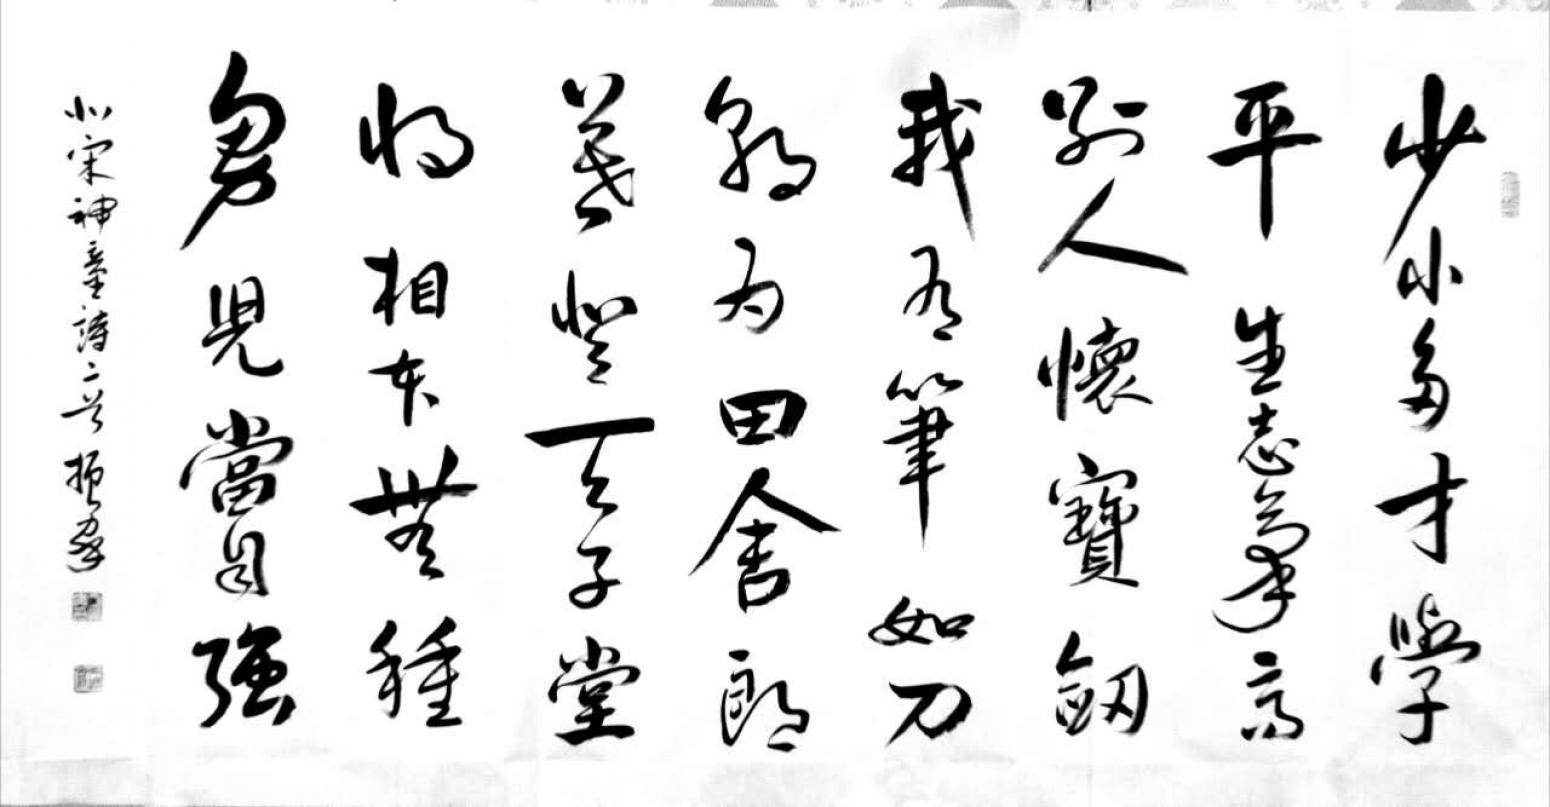 少小多才學
平生志氣高
別人懷寶劒
我有筆如刀
朝為田舍郎
暮登天子堂
將相本無種
男兒當自強
北宋神童詩二首 振